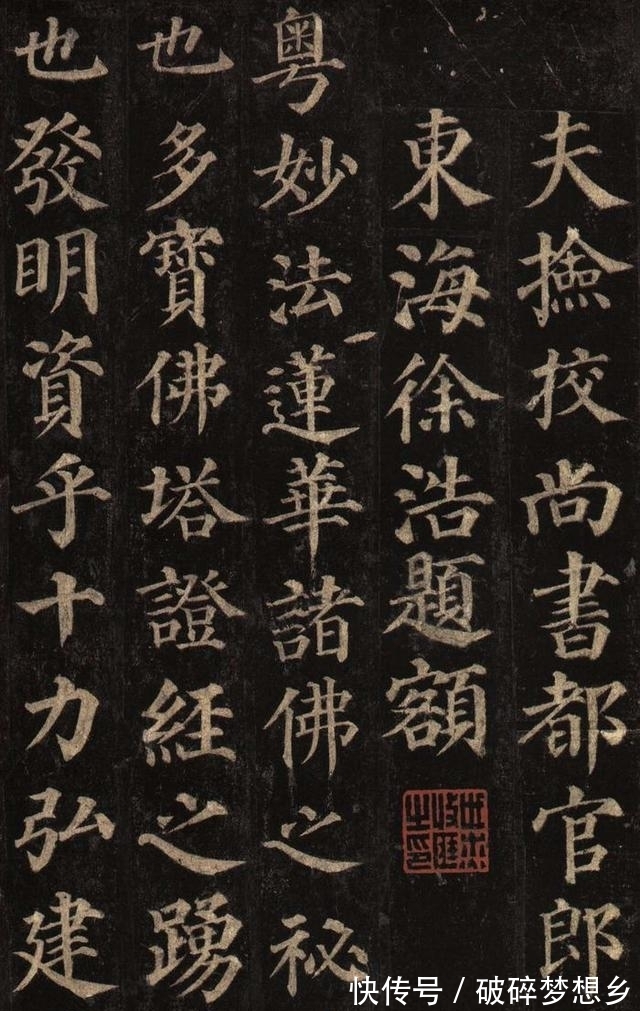 夫撿挍尚書都官郎
東海徐浩題額
粵妙法蓮華諸佛之祕
也多寶佛塔證經之踴
也發明資乎十力弘建
快传号/破碎梦想乡